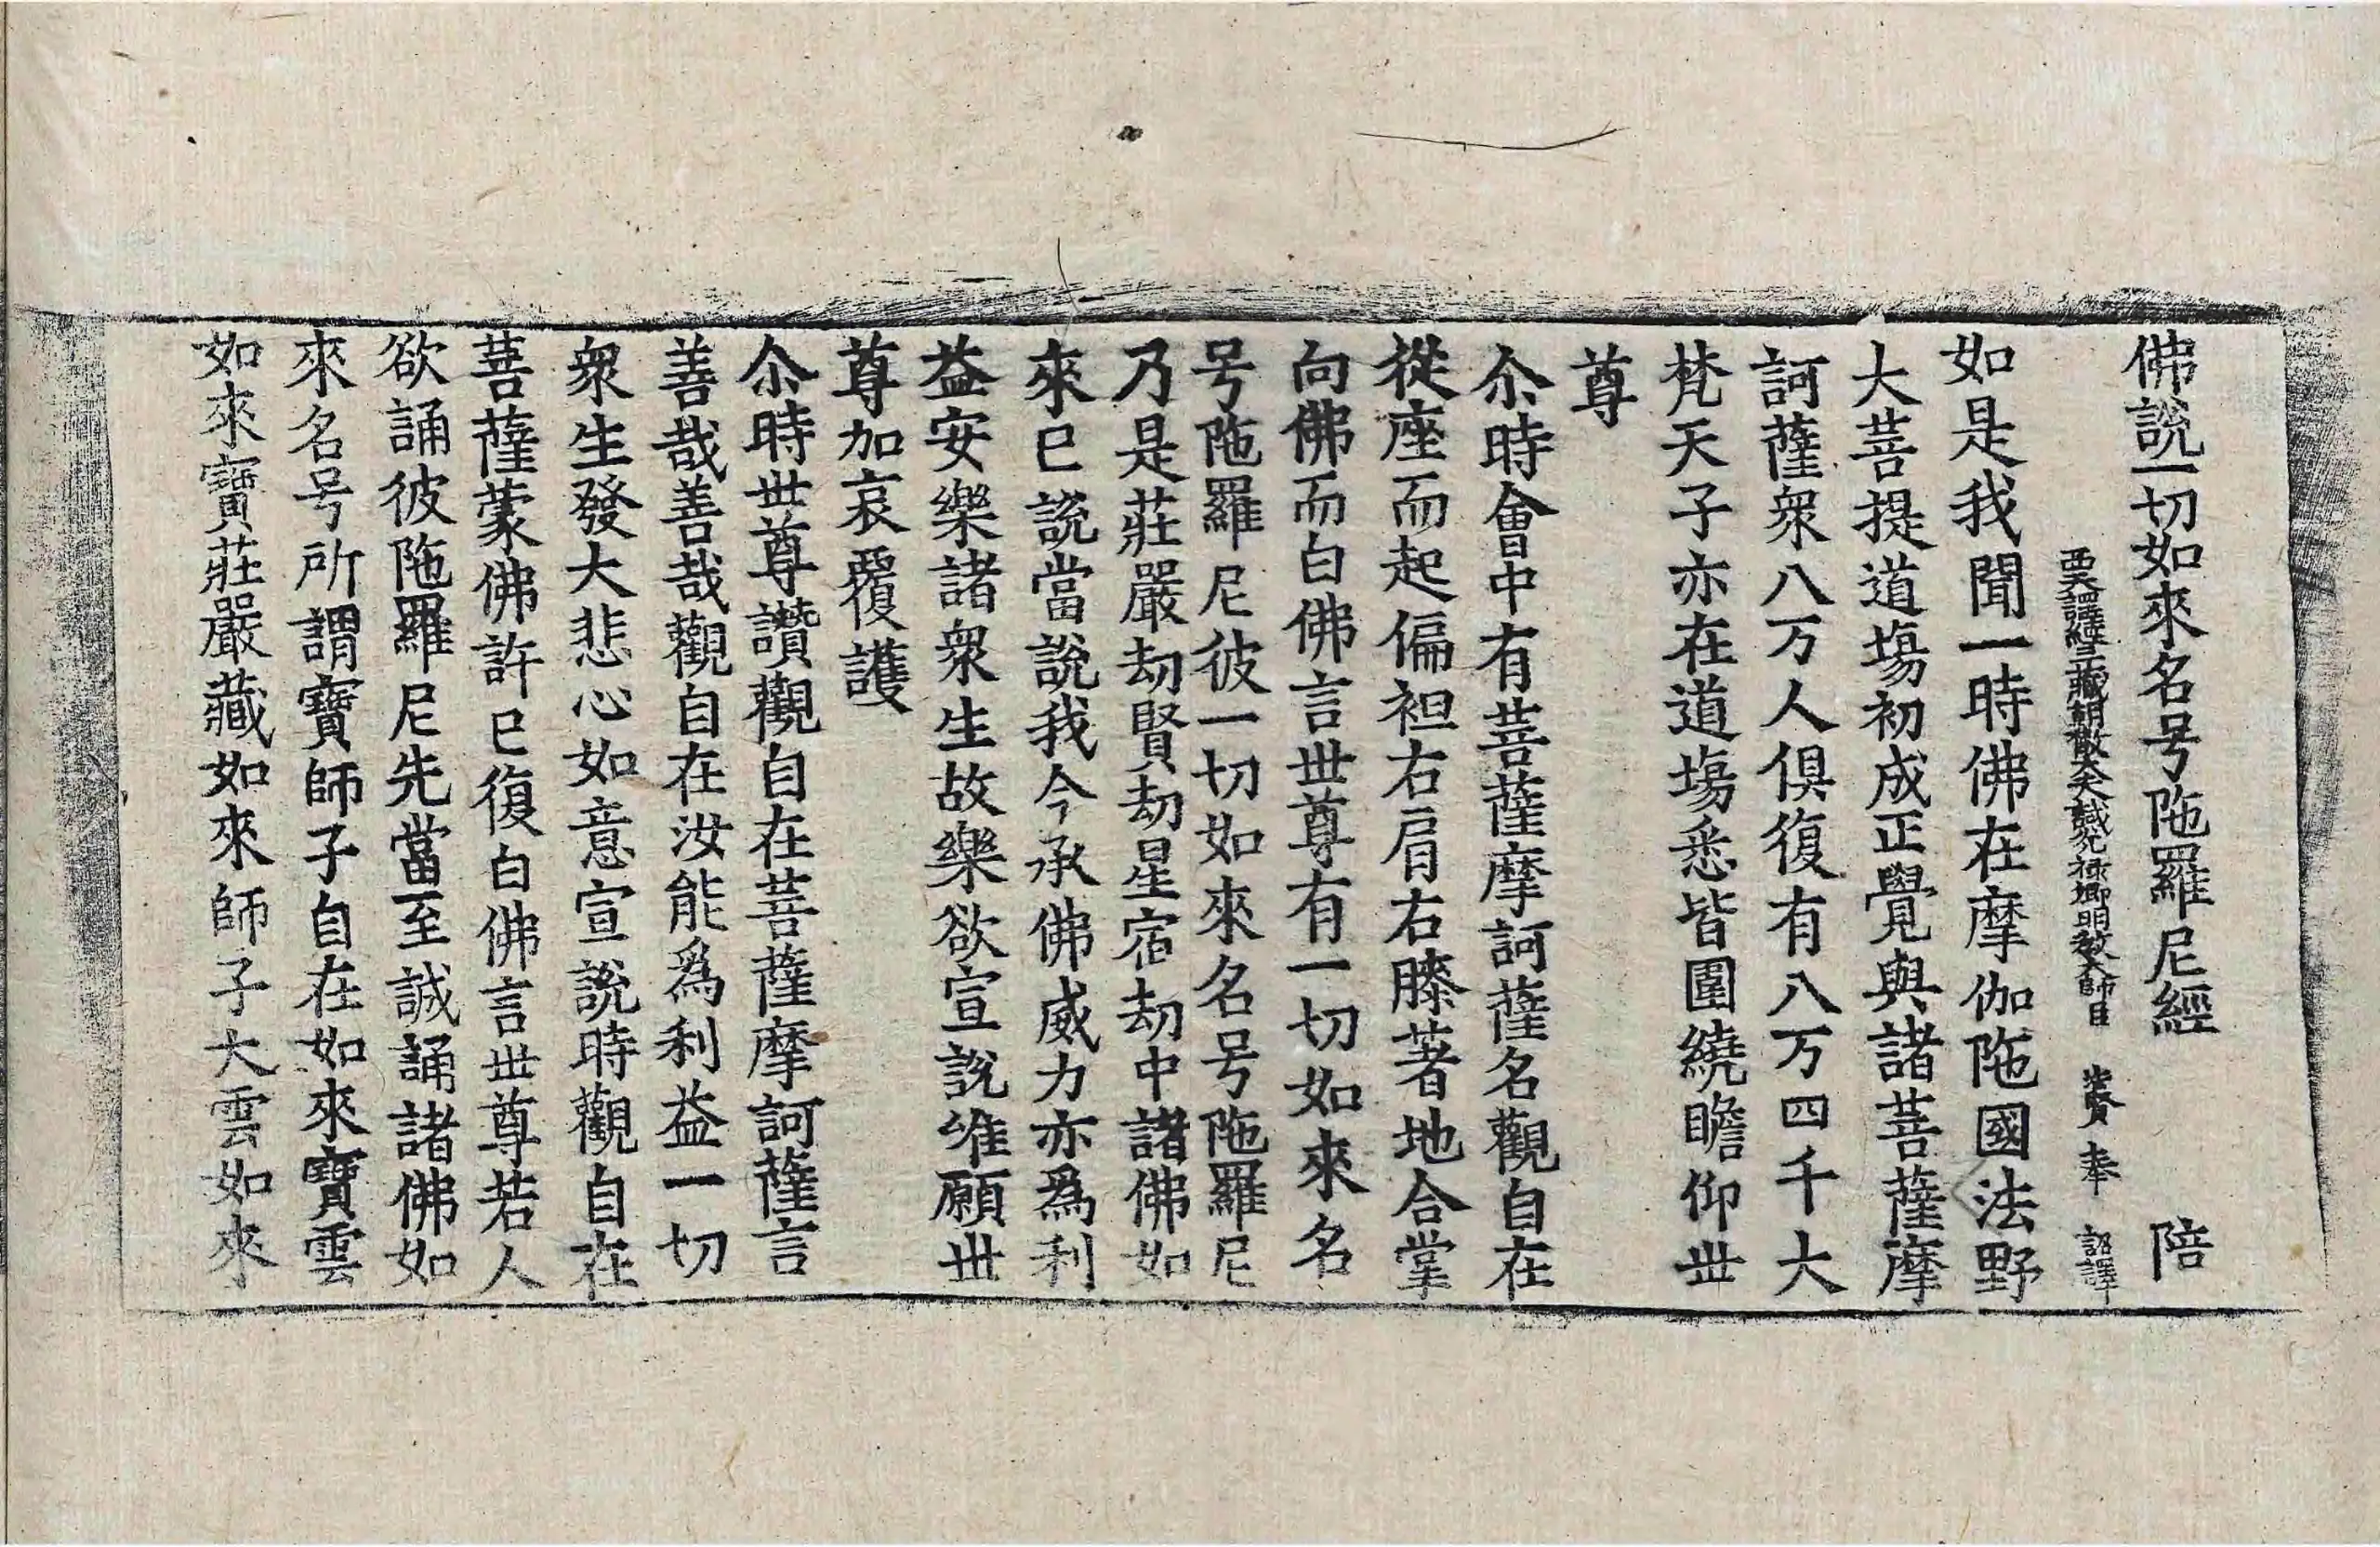 佛說一切如來名号陁羅尼經 陪
西天譯經三藏朝散大夫試光祿卿明教大師臣 法賢奉 詔譯
如是我聞一時佛在摩伽陁國法野
大菩提道場初成正覺與諸菩薩摩
訶薩衆八万人俱復有八万四千大
梵天子亦在道場悉皆圍繞瞻仰世
尊
尒時會中有菩薩摩訶薩名觀自在
從座而起偏袒右肩右膝著地合掌
向佛而白佛言世尊有一切如來名
号陁羅尼彼一切如來名号陁羅尼
乃是莊嚴劫賢劫星宿劫中諸佛如
來已說當說我今承佛威力亦爲利
益安樂諸衆生故樂欲宣說唯願世
尊加哀覆護
尒時世尊讚觀自在菩薩摩訶薩言
善哉善哉觀自在汝能爲利益一切
衆生發大悲心如意宣說時觀自在
菩薩蒙佛許已復白佛言世尊若人
欲誦彼陁羅尼先當至誠誦諸佛如
來名号所謂寶師子自在如來寶雲
如來寶莊嚴藏如來師子大雲如來